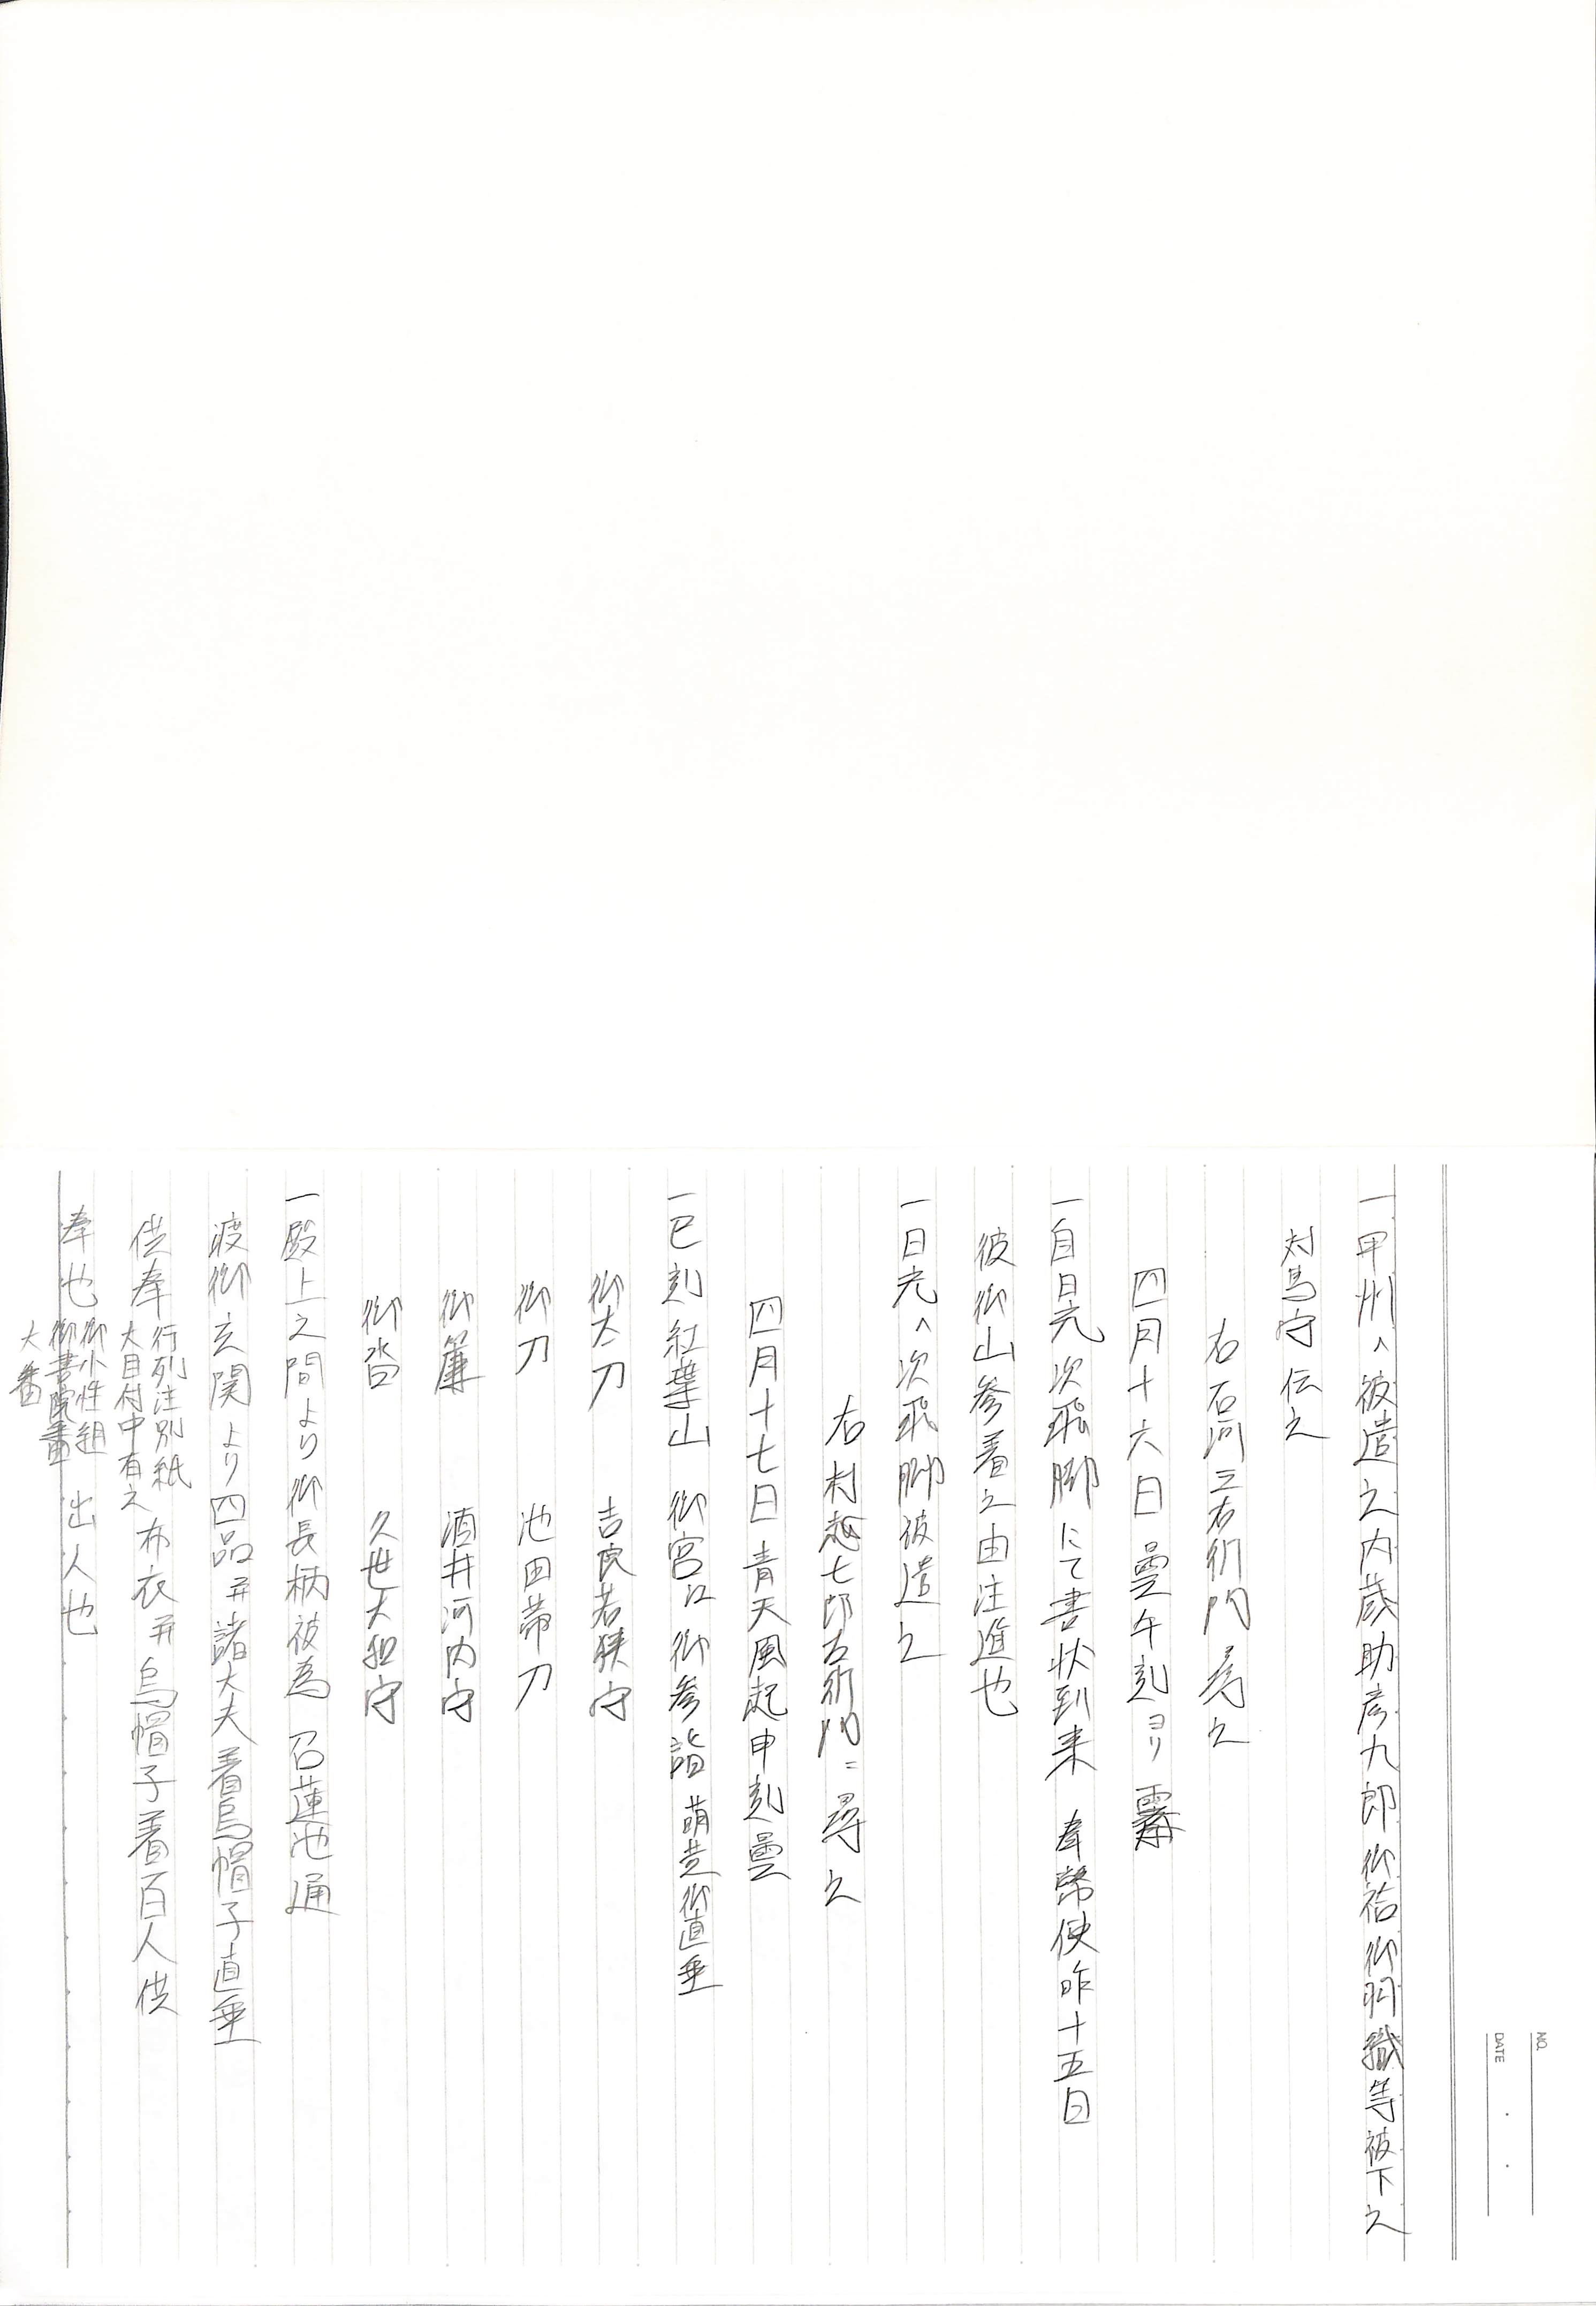 NO.
DATE
一甲州へ被遣之内歳助彦九郎御袷御羽織等被下之
対馬守伝之
右石河三右衛門 之
四月十六日曇午刻ヨリ霽
一自日光次飛脚にて書状到来 奉幣使昨十五日
彼御山参着之由注進也
一日光へ次飛脚被遣之
右村越七郎右衛門ニ尋之
四月十七日青天風起申刻曇
一巳刻紅葉山 御宮江御参詣 萌黄御直垂
御太刀 吉良若狭守
御刀 池田帯刀
御簾 酒井河内守
御沓 久世大和守
一殿上之間より御長柄被為 召蓮池通
渡御玄関より四品并諸大夫着烏帽子直垂
供奉 行列注別紙 大目付中有之 布衣并烏帽子着百人供
奉也 御小性組 御書院番 大番 出人也